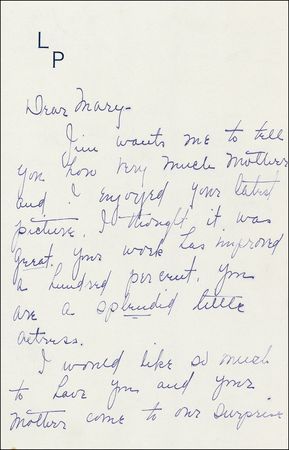 L
P
Dear Mary-
Jim wants me to tell
you how very much Mother
and I enjoyed your latest
picture. I thought it was
great. Your work has improved
a hundred per cent. You
are a splendid little
actress.
I would like so much
to have you and your
Mother come to our surprise